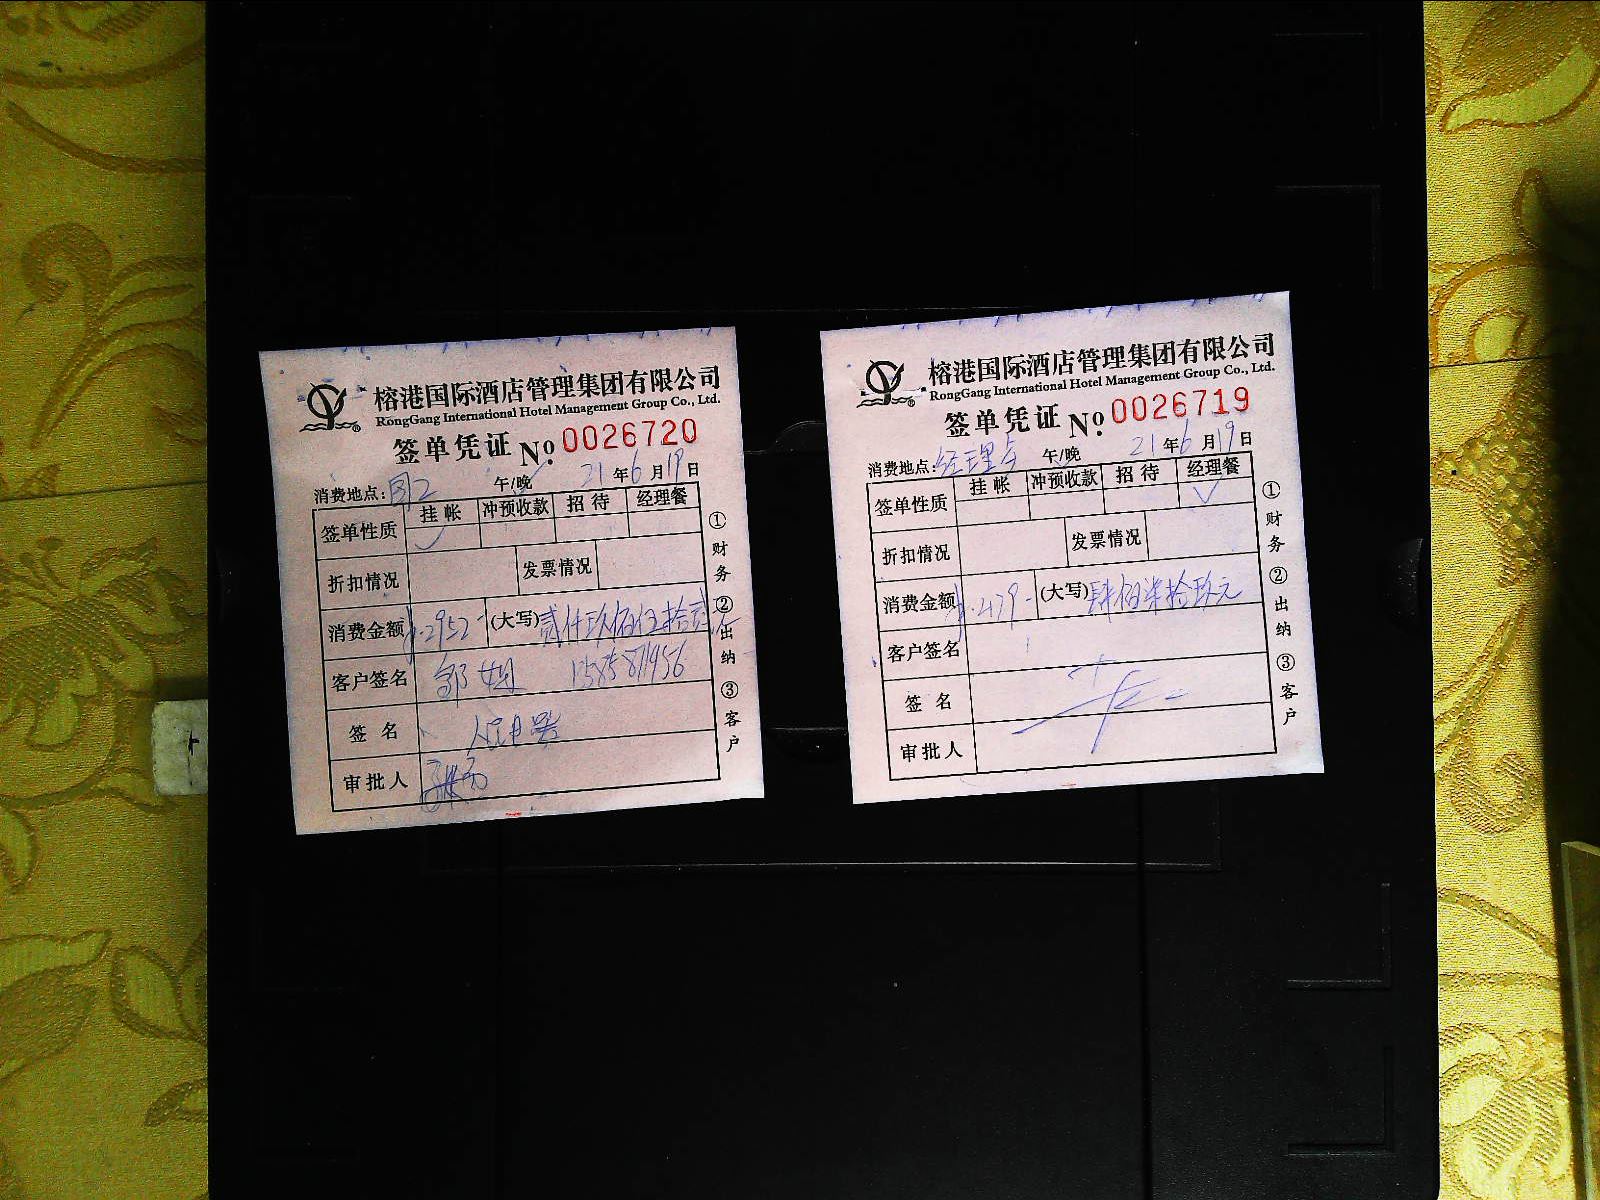 榕港国际酒店管理集团有限公司
RongGang International Hotel Management Group Co., Ltd.
签单凭证 No. 0026720
消费地点: 午/晚 21年6月19日
签单性质 挂帐 冲预收款 招待 经理餐
折扣情况 发票情况
消费金额 ¥.2952- (大写)贰仟玖佰伍拾贰元
客户签名 邹
签名
审批人
①财务 ②出纳 ③客户
榕港国际酒店管理集团有限公司
RongGang International Hotel Management Group Co., Ltd.
签单凭证 No. 0026719
消费地点:经理 午/晚 21年6月19日
签单性质 挂帐 冲预收款 招待 经理餐
折扣情况 发票情况
消费金额 ¥.479- (大写)肆佰柒拾玖元
客户签名
签名
审批人
①财务 ②出纳 ③客户